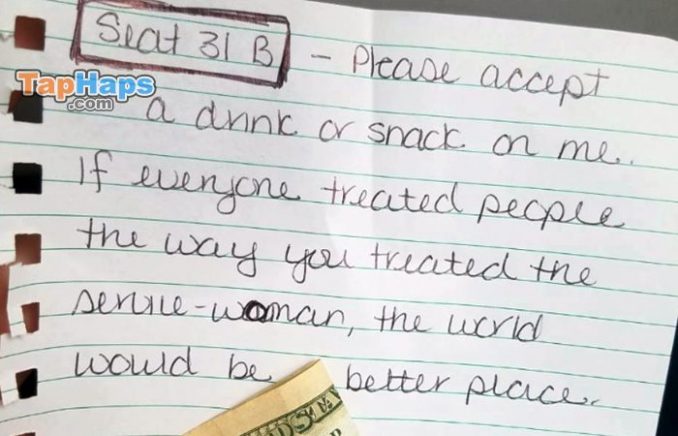 Seat 31 B - Please accept
TapHaps
.com
a drink or snack on me.
If everyone treated people
the way you treated the
service-woman, the world
would be better place.